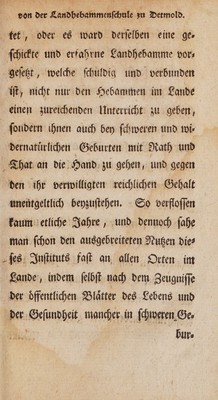 von der Landhebammenschule zu Detmold.
tet, oder es ward derselben eine ge-
schickte und erfahrne Landhebamme vor-
gesetzt, welche schuldig und verbunden
ist, nicht nur den Hebammen im Lande
einen zureichenden Unterricht zu geben,
sondern ihnen auch bey schweren und wi-
dernatürlichen Geburten mit Rath und
That an die Hand zu gehen, und gegen
den ihr verwilligten reichlichen Gehalt
unentgeltlich beyzustehen. So verflossen
kaum etliche Jahre, und dennoch sahe
man schon den ausgebreiteten Nutzen die-
ses Instituts fast an allen Orten im
Lande, indem selbst nach dem Zeugnisse
der öffentlichen Blätter des Lebens und
der Gesundheit mancher in schweren Ge-
bur-